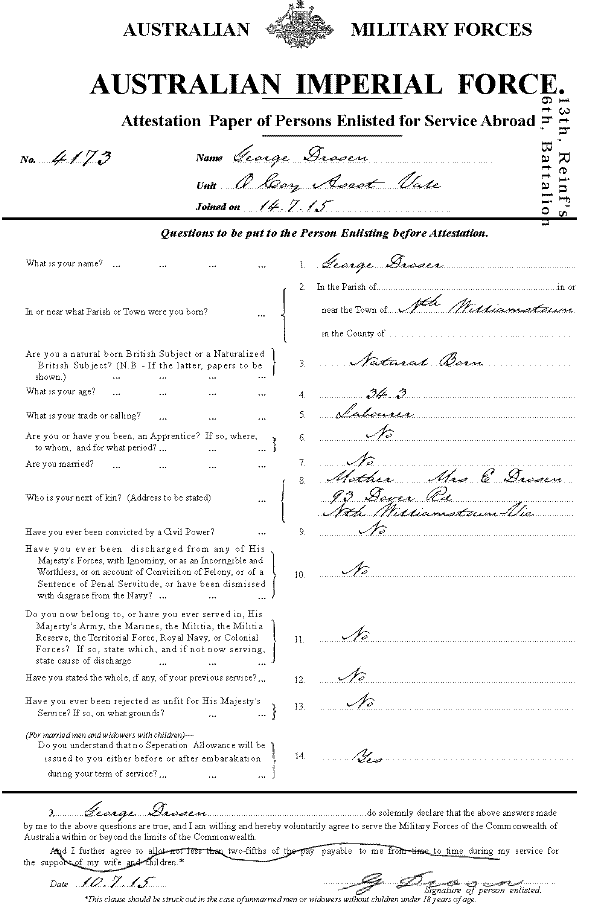 AUSTRALIAN MILITARY FORCES
AUSTRALIAN IMPERIAL FORCE.
Attestation Paper of Persons Enlisted for Service Abroad
13th, Reinf's
6th, Battalion
No. 4173
Name George Drosen
Unit A Coy Ascot Vale
Joined on 14.7.15
Questions to be put to the Person Enlisting before Attestation.
What is your name? ... ... ... ... 1. George Drosen
2. In the Parish of in or
In or near what Parish or Town were you born? ... near the Town of Nth Williamstown
in the County of
Are you a natural born British Subject or a Naturalized
British Subject? (N.B - If the latter, papers to be 3. Natural Born
shown.) ... ... ...
What is your age? ... ... ... ... 4. 34.3
What is your trade or calling? ... ... ... 5. Labourer
Are you or have you been, an Apprentice? If so, where, 6. No
to whom, and for what period? ... ... ...
Are you married? ... ... ... ... 7. No
8. Mother Mrs E Drosen
Who is your next of kin? (Address to be stated) ... 93 Dover Rd
Nth Williamstown Vic
Have you ever been convicted by a Civil Power? ... 9. No
Have you ever been discharged from any of His
Majesty's Forces, with Ignominy, or as an Incorrigible and
Worthless, or on account of Conviction of Felony, or of a 10. No
Sentence of Penal Servitude, or have been dismissed
with disgrace from the Navy? ... ... ...
Do you now belong to, or have you ever served in, His
Majesty's Army, the Marines, the Militia, the Militia
Reserve, the Territorial Force, Royal Navy, or Colonial 11. No
Forces? If so, state which, and if not now serving,
state cause of discharge ... ... ...
Have you stated the whole, if any, of your previous service? ... 12. No
Have you ever been rejected as unfit for His Majesty's 13. No
Service? If so, on what grounds? ... ...
(For married men and widowers with children)—
Do you understand that no Seperation Allowance will be
issued to you either before or after embarakation 14. Yes
during your term of service? ... ... ...
I, George Drosen do solemnly declare that the above answers made
by me to the above questions are true, and I am willing and hereby voluntarily agree to serve the Military Forces of the Commonwealth of
Australia within or beyond the limits of the Commonwealth.
And I further agree to allot not less than two-fifths of the pay payable to me from time to time during my service for
the support of my wife and children.*
Date 10.7.15 G Drosen
Signature of person enlisted.
*This clause should be struck out in the case of unmarried men or widowers without children under 18 years of age.